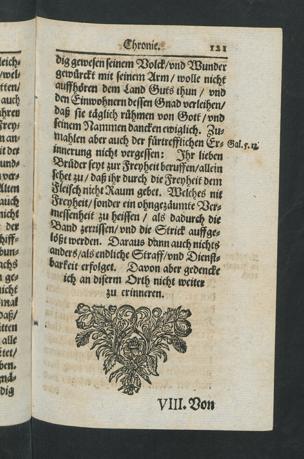 Chronic. 121
dig gewesen seinem Volck/vnd Wunder
gewürckt mit seinem Arm/ wolle nicht
auffhören dem Land Guts thun/ vnd
den Einwohnern dessen Gnad verleihen/
daß sie täglich rühmen von Gott/vnd
seinem Nammen dancken ewiglich. Zu-
mahlen aber auch der fürtrefflichen Er- Gal. 5.13.
innerung nicht vergessen: Ihr lieben
Brüder seyt zur Freyheit beruffen/allein
sehet zu/ daß ihr durch die Freyheit dem
Fleisch nicht Raum gebet. Welches nit
Freyheit/sonder ein ohngezäumte Ver-
messenheit zu heissen/ als dadurch die
Band zerrissen/vnd die Strick auffge-
lößt werden. Daraus dann auch nichts
anders/als endliche Straff/vnd Dienst-
barkeit erfolget. Davon aber gedencke
ich an diserm Orth nicht weiter
zu erinneren.
VIII. Von